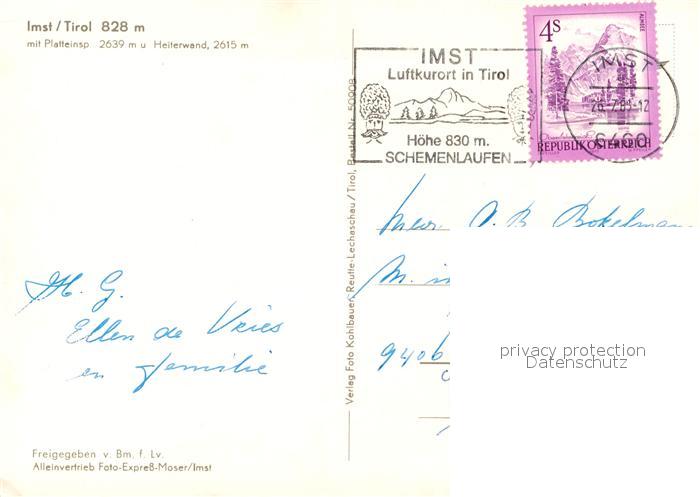 Imst / Tirol 828 m
mit Platteinsp. 2639 m u Heiterwand, 2615 m
H. G.
Ellen de Vries
en familie
Freigegeben v. Bm. f. Lv.
Alleinvertrieb Foto-Expreß-Moser/Imst
Verlag Foto Kohlbauer, Reutte-Lechaschau / Tirol, Bestell Nr. 50908
IMST
Luftkurort in Tirol
Höhe 830 m.
SCHEMENLAUFEN
4S
ALMSEE
REPUBLIK ÖSTERREICH
IMST
6460
B. Bokelman
9406
privacy protection
Datenschutz